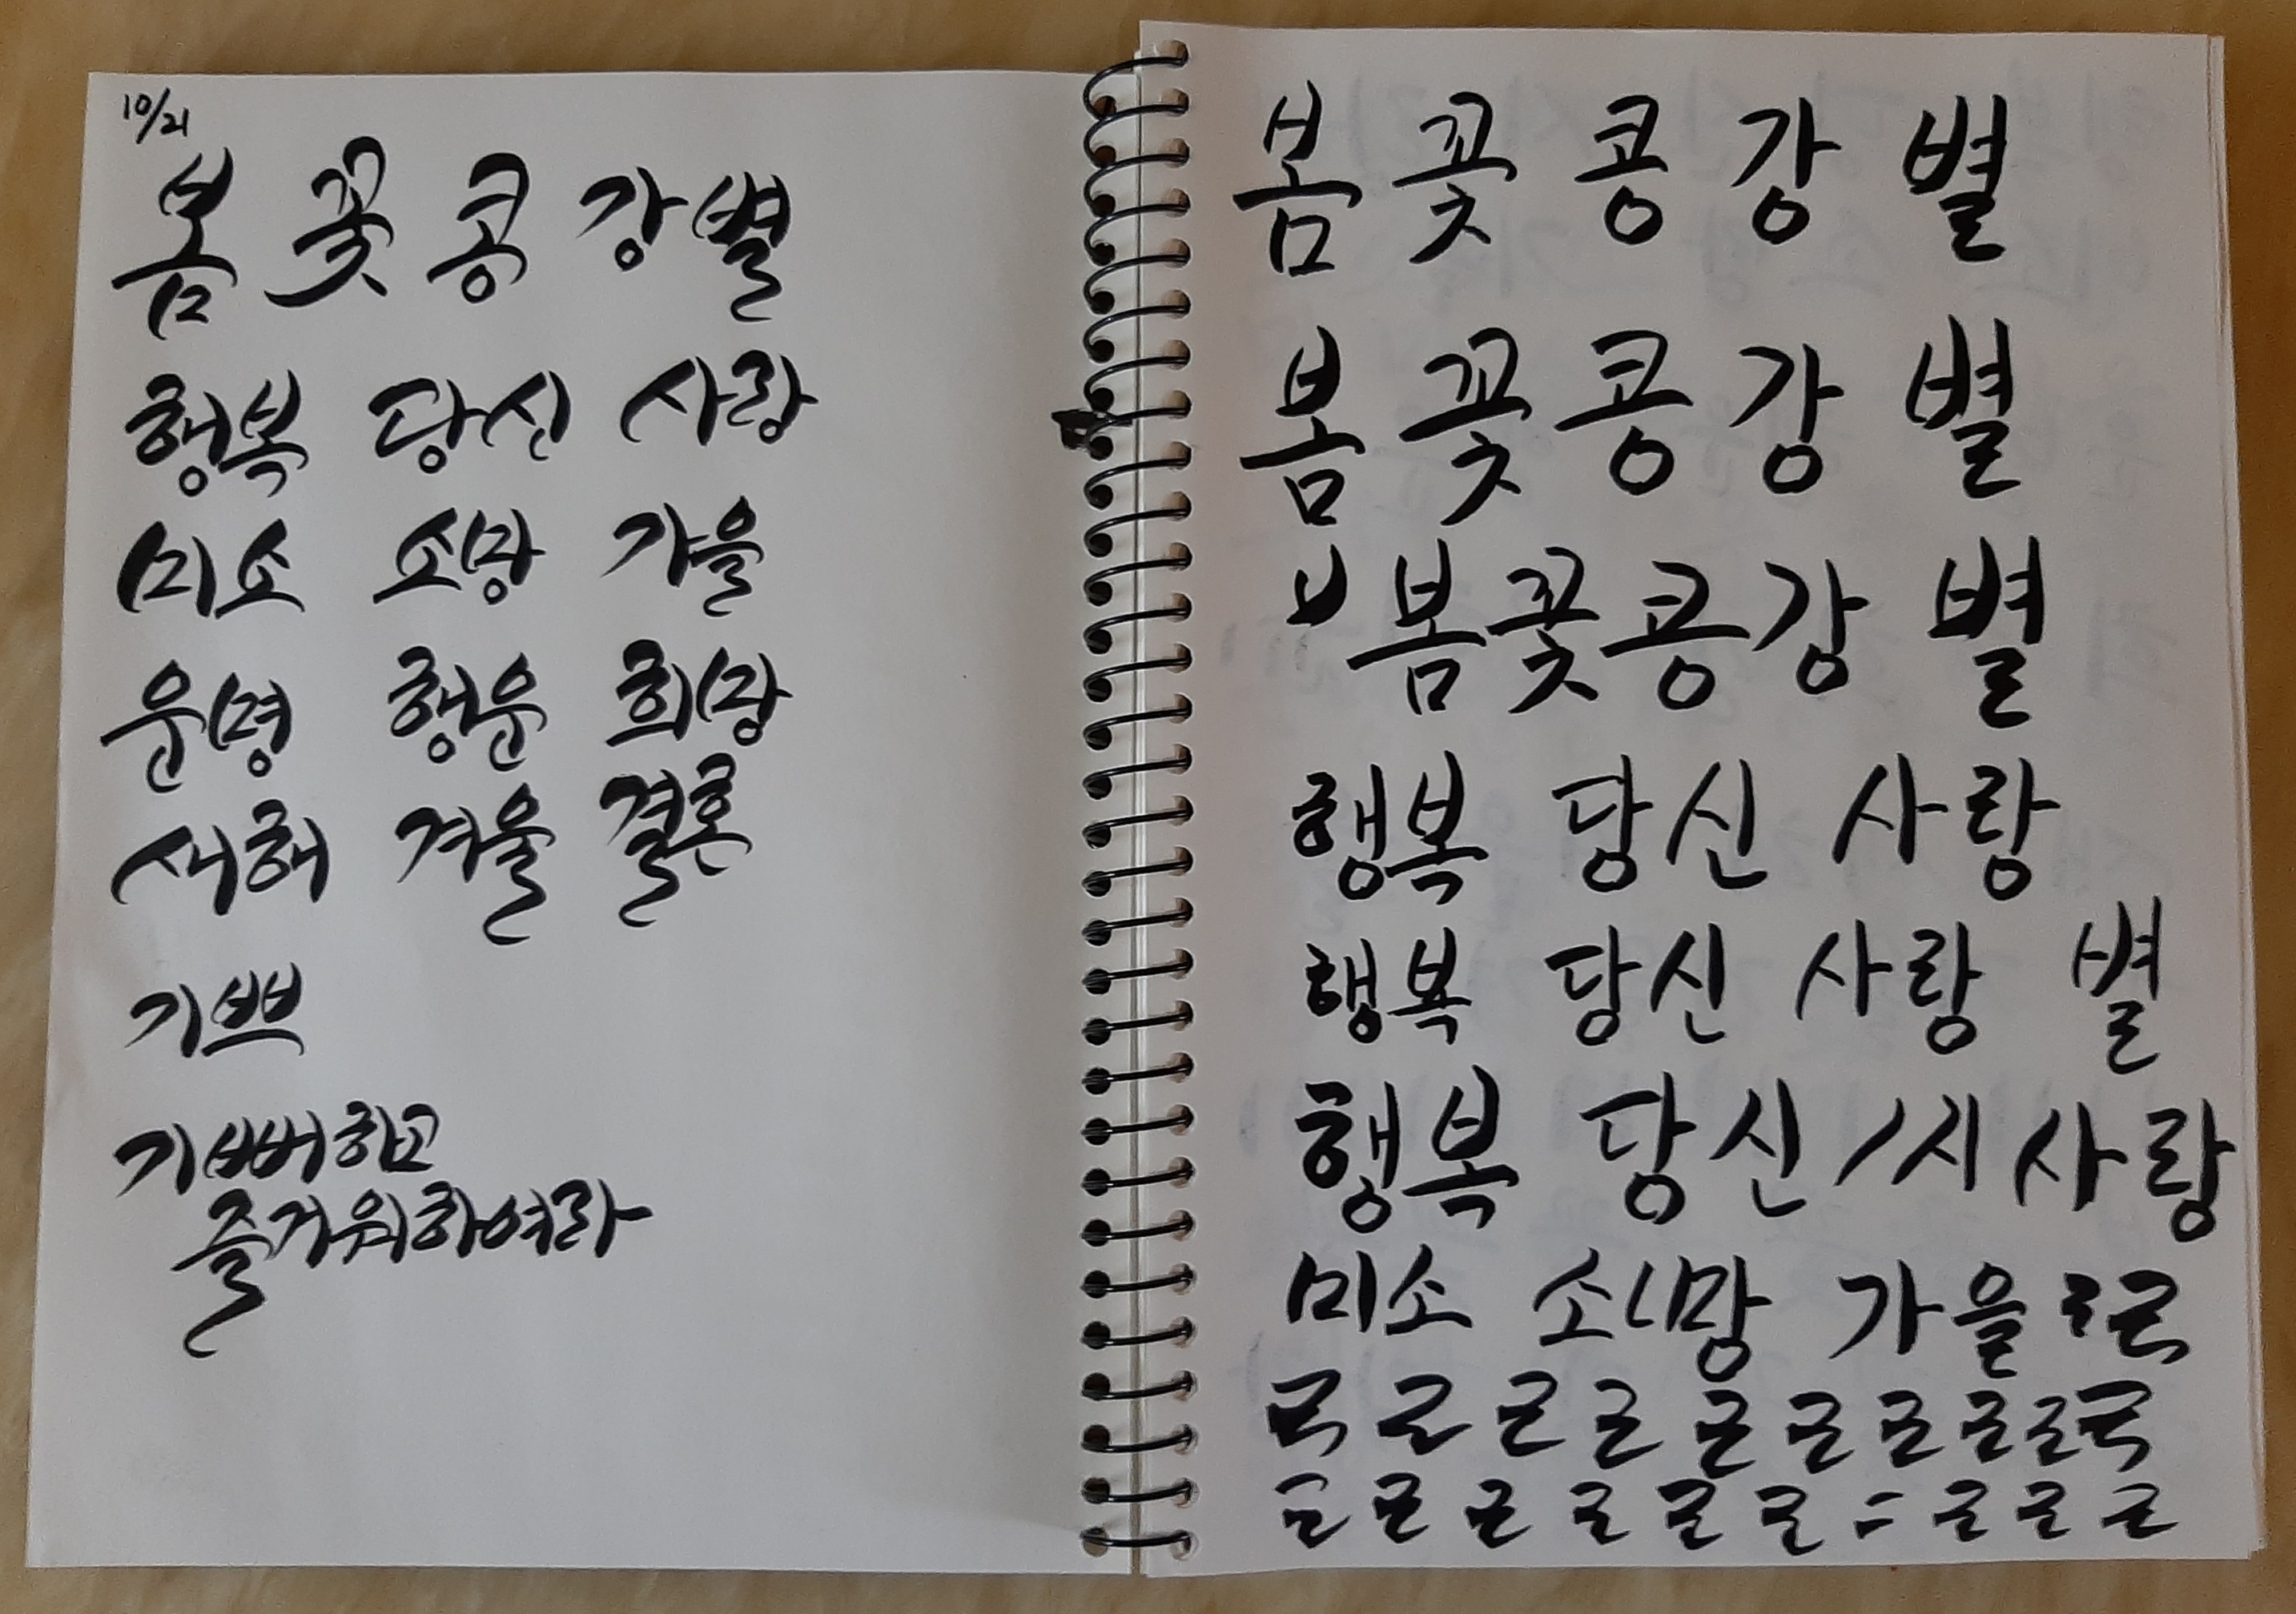 10/21
봄 꽃 콩 강 별
행복 당신 사랑
미소 소망 가을
운명 행운 희망
새해 겨울 결혼
기쁘
기뻐하고
즐거워하여라
봄 꽃 콩 강 별
봄 꽃 콩 강 별
ㅂ 봄 꽃 콩 강 별
행복 당신 사랑
행복 당신 사랑 별
행복 당신 시 사랑
미소 소망 가을 ㄹ ㄹ
ㄹ ㄹ ㄹ ㄹ ㄹ ㄹ ㄹ ㄹ ㄹ ㄹ
ㄹ ㄹ ㄹ ㄹ ㄹ ㄹ ㄹ ㄹ ㄹ